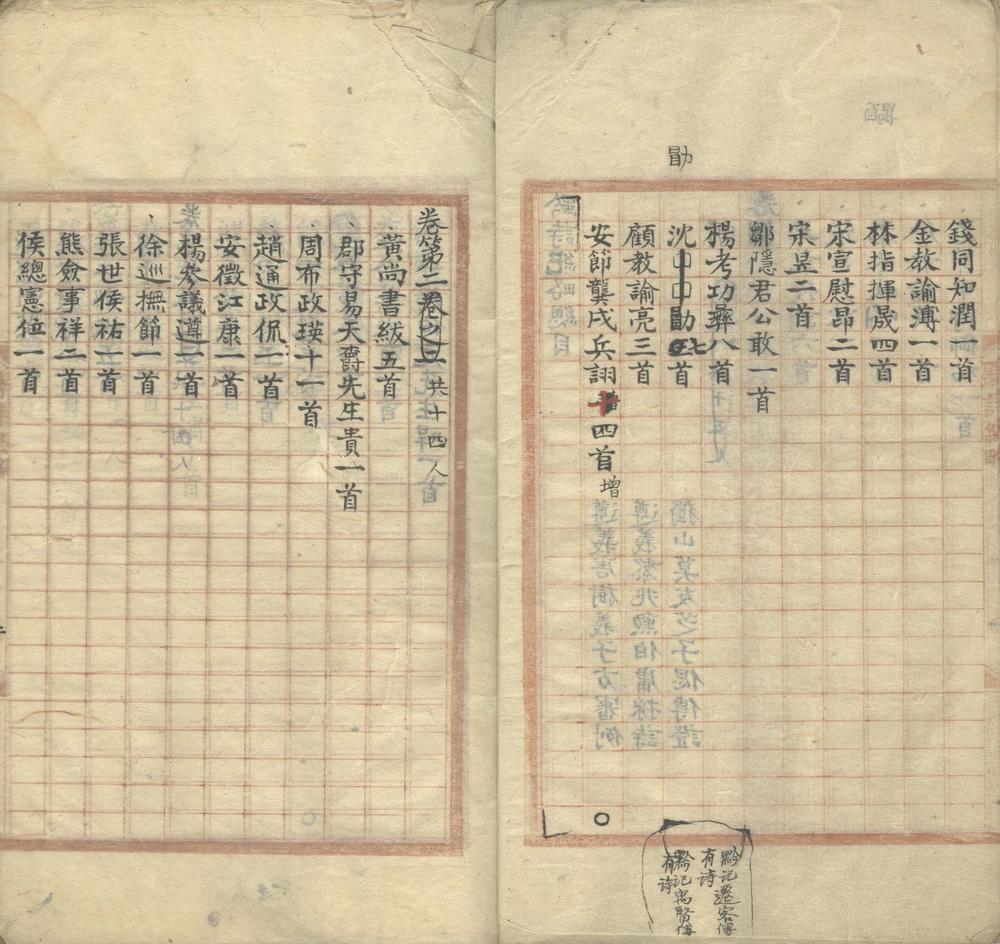 錢同知潤一首
金敎諭溥一首
林指揮晟四首
宋宣慰昂二首
宋昱二首
鄒隱君公敢一首
楊考功彞八首
勖
沈勖七首
顧教諭亮三首
安節龔戌兵詡四首增
黔记遷客傳
有诗
黔记寓賢傳
有诗
卷第二 共十四人
黃尚書紱五首
郡守易天爵先生貴一首
周布政瑛十一首
趙通政侃一首
安徵江康一首
楊參議遵一首
徐巡撫節一首
張世侯祐一首
熊僉事祥二首
侯總憲位一首